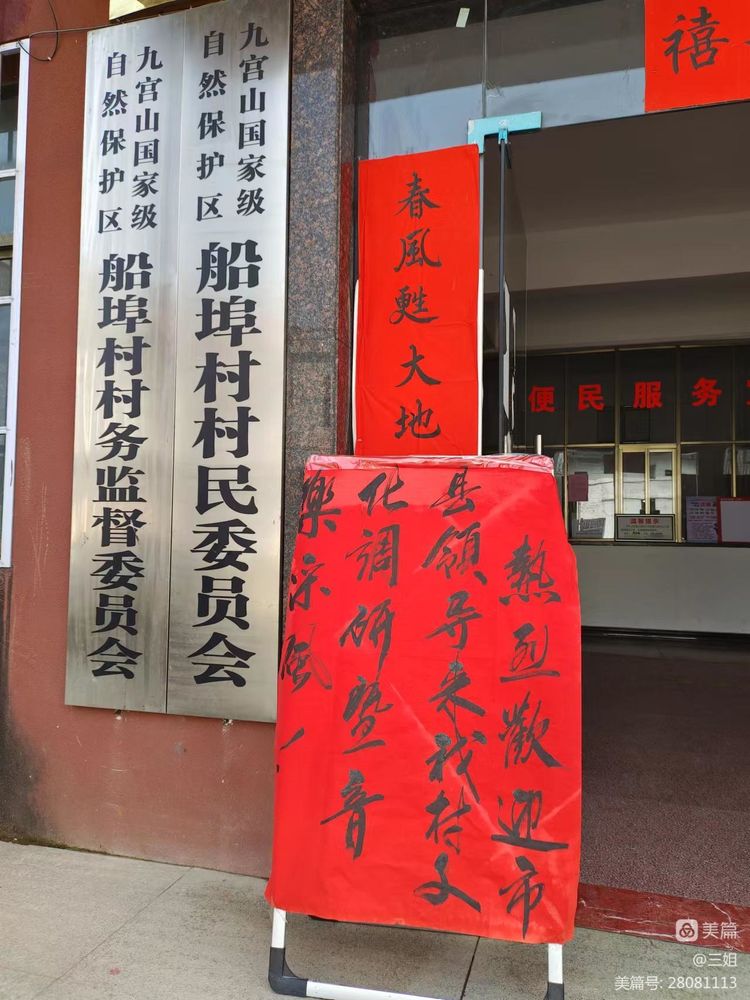 九宫山国家级
自然保护区
船埠村村民委员会
九宫山国家级
自然保护区
船埠村村务监督委员会
禧
春風甦大地
便民服务
熱烈歡迎市
县領导来我村文
化调研暨音
樂采風！
温馨提示
美篇
@三姐
美篇号: 28081113